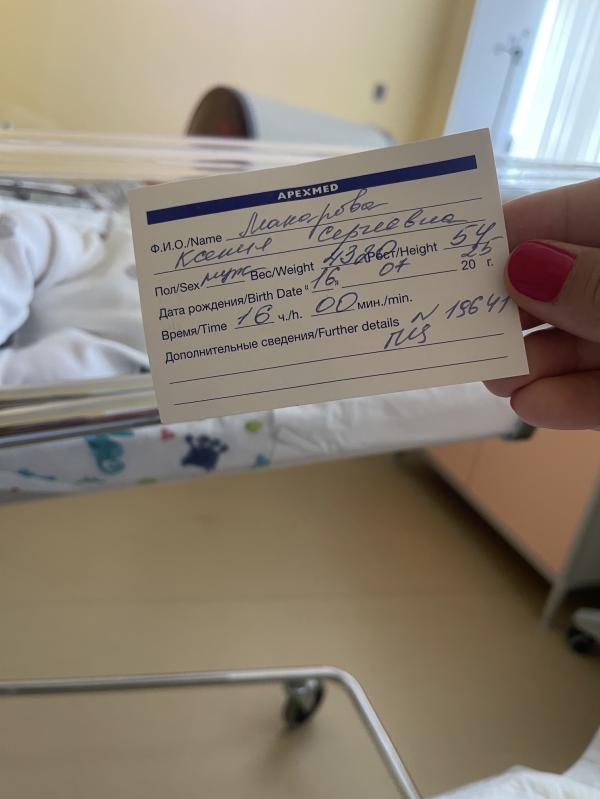 APEXMED
Ф.И.О./Name Макарова
Ксения Сергеевна
Пол/Sex муж Вес/Weight 4320 Рост/Height 54
Дата рождения/Birth Date "16" 07 2025 г.
Время/Time 16 ч./h. 00 мин./min.
Дополнительные сведения/Further details N 19641
ПЦ